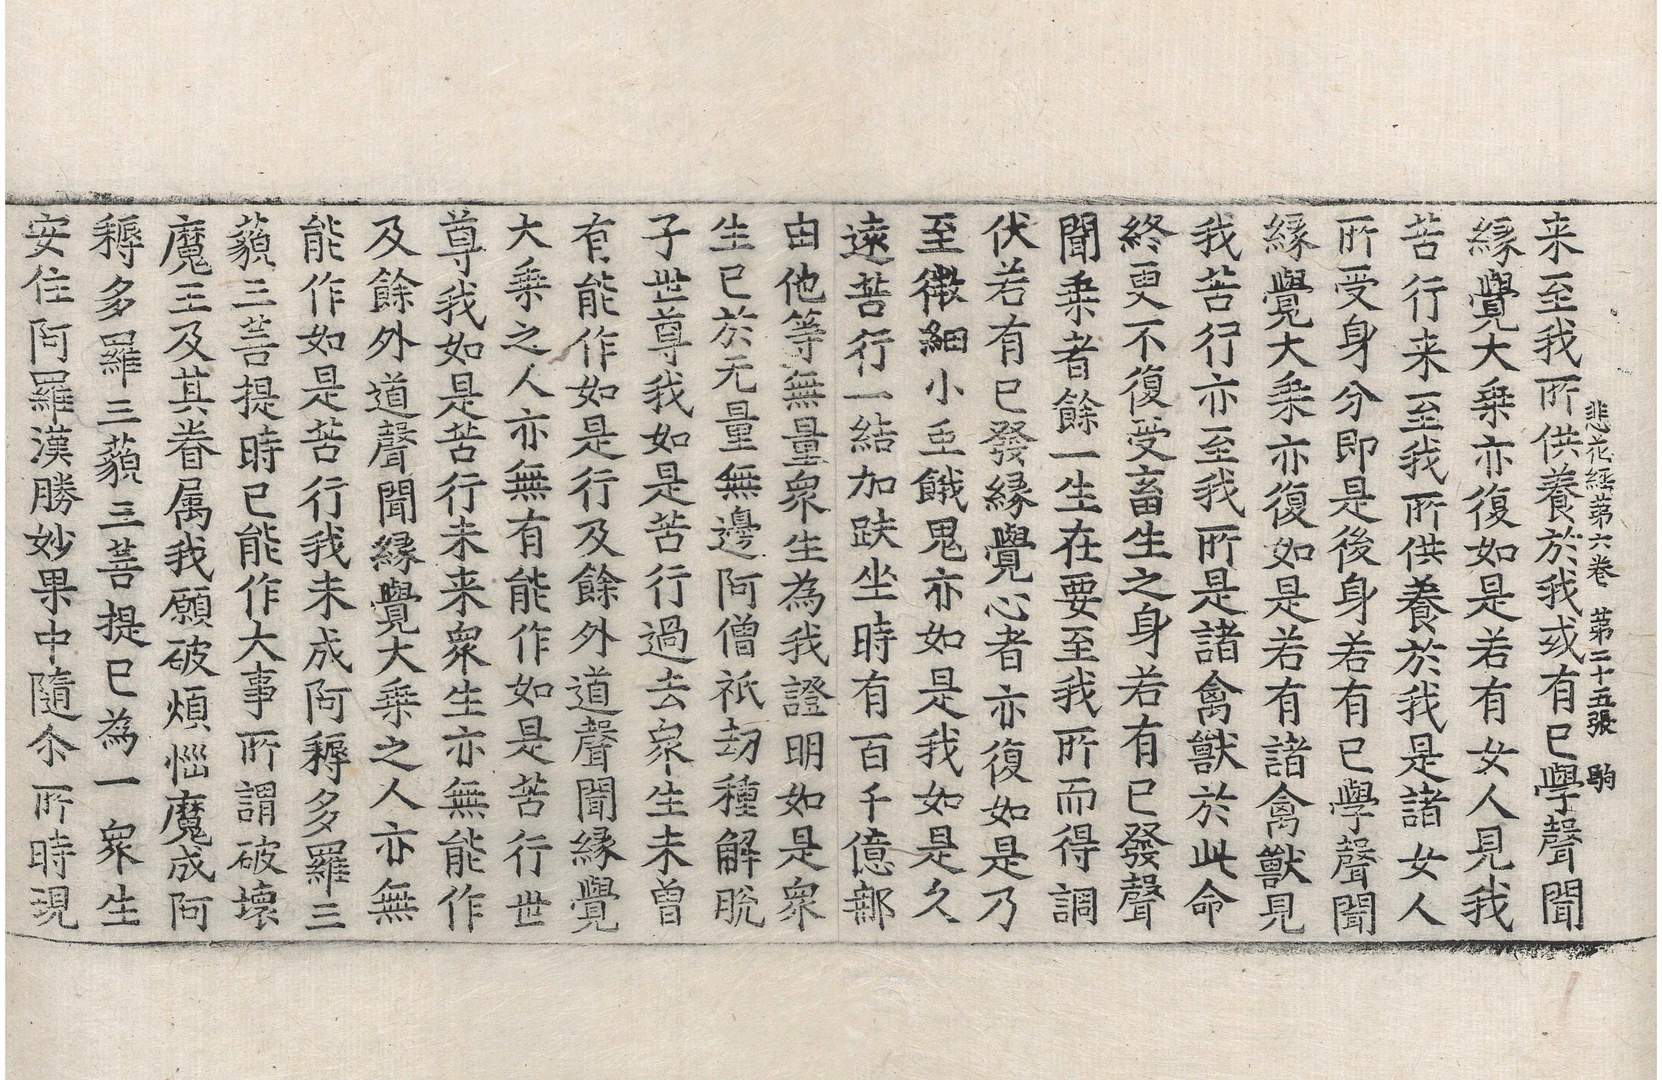 悲花經第六卷　第二十五張　駒
来至我所供養於我或有已學聲聞
縁覺大乗亦復如是若有女人見我
苦行来至我所供養於我是諸女人
所受身分即是後身若有已學聲聞
縁覺大乗亦復如是若有諸禽獸見
我苦行亦至我所是諸禽獸於此命
終更不復受畜生之身若有已發聲
聞乗者餘一生在要至我所而得調
伏若有已發縁覺心者亦復如是乃
至微細小䖝餓鬼亦如是我如是久
遠苦行一結加趺坐時有百千億𨚗
由他等無量衆生為我證明如是衆
生已於无量無邊阿僧祇劫種解脫
子世尊我如是苦行過去衆生未曽
有能作如是行及餘外道聲聞縁覺
大乗之人亦無有能作如是苦行世
尊我如是苦行未来衆生亦無能作
及餘外道聲聞縁覺大乗之人亦無
能作如是苦行我未成阿耨多羅三
藐三菩提時已能作大事所謂破壞
魔王及其眷属我願破煩惱魔成阿
耨多羅三藐三菩提已為一衆生
安住阿羅漢勝妙果中隨尒所時現